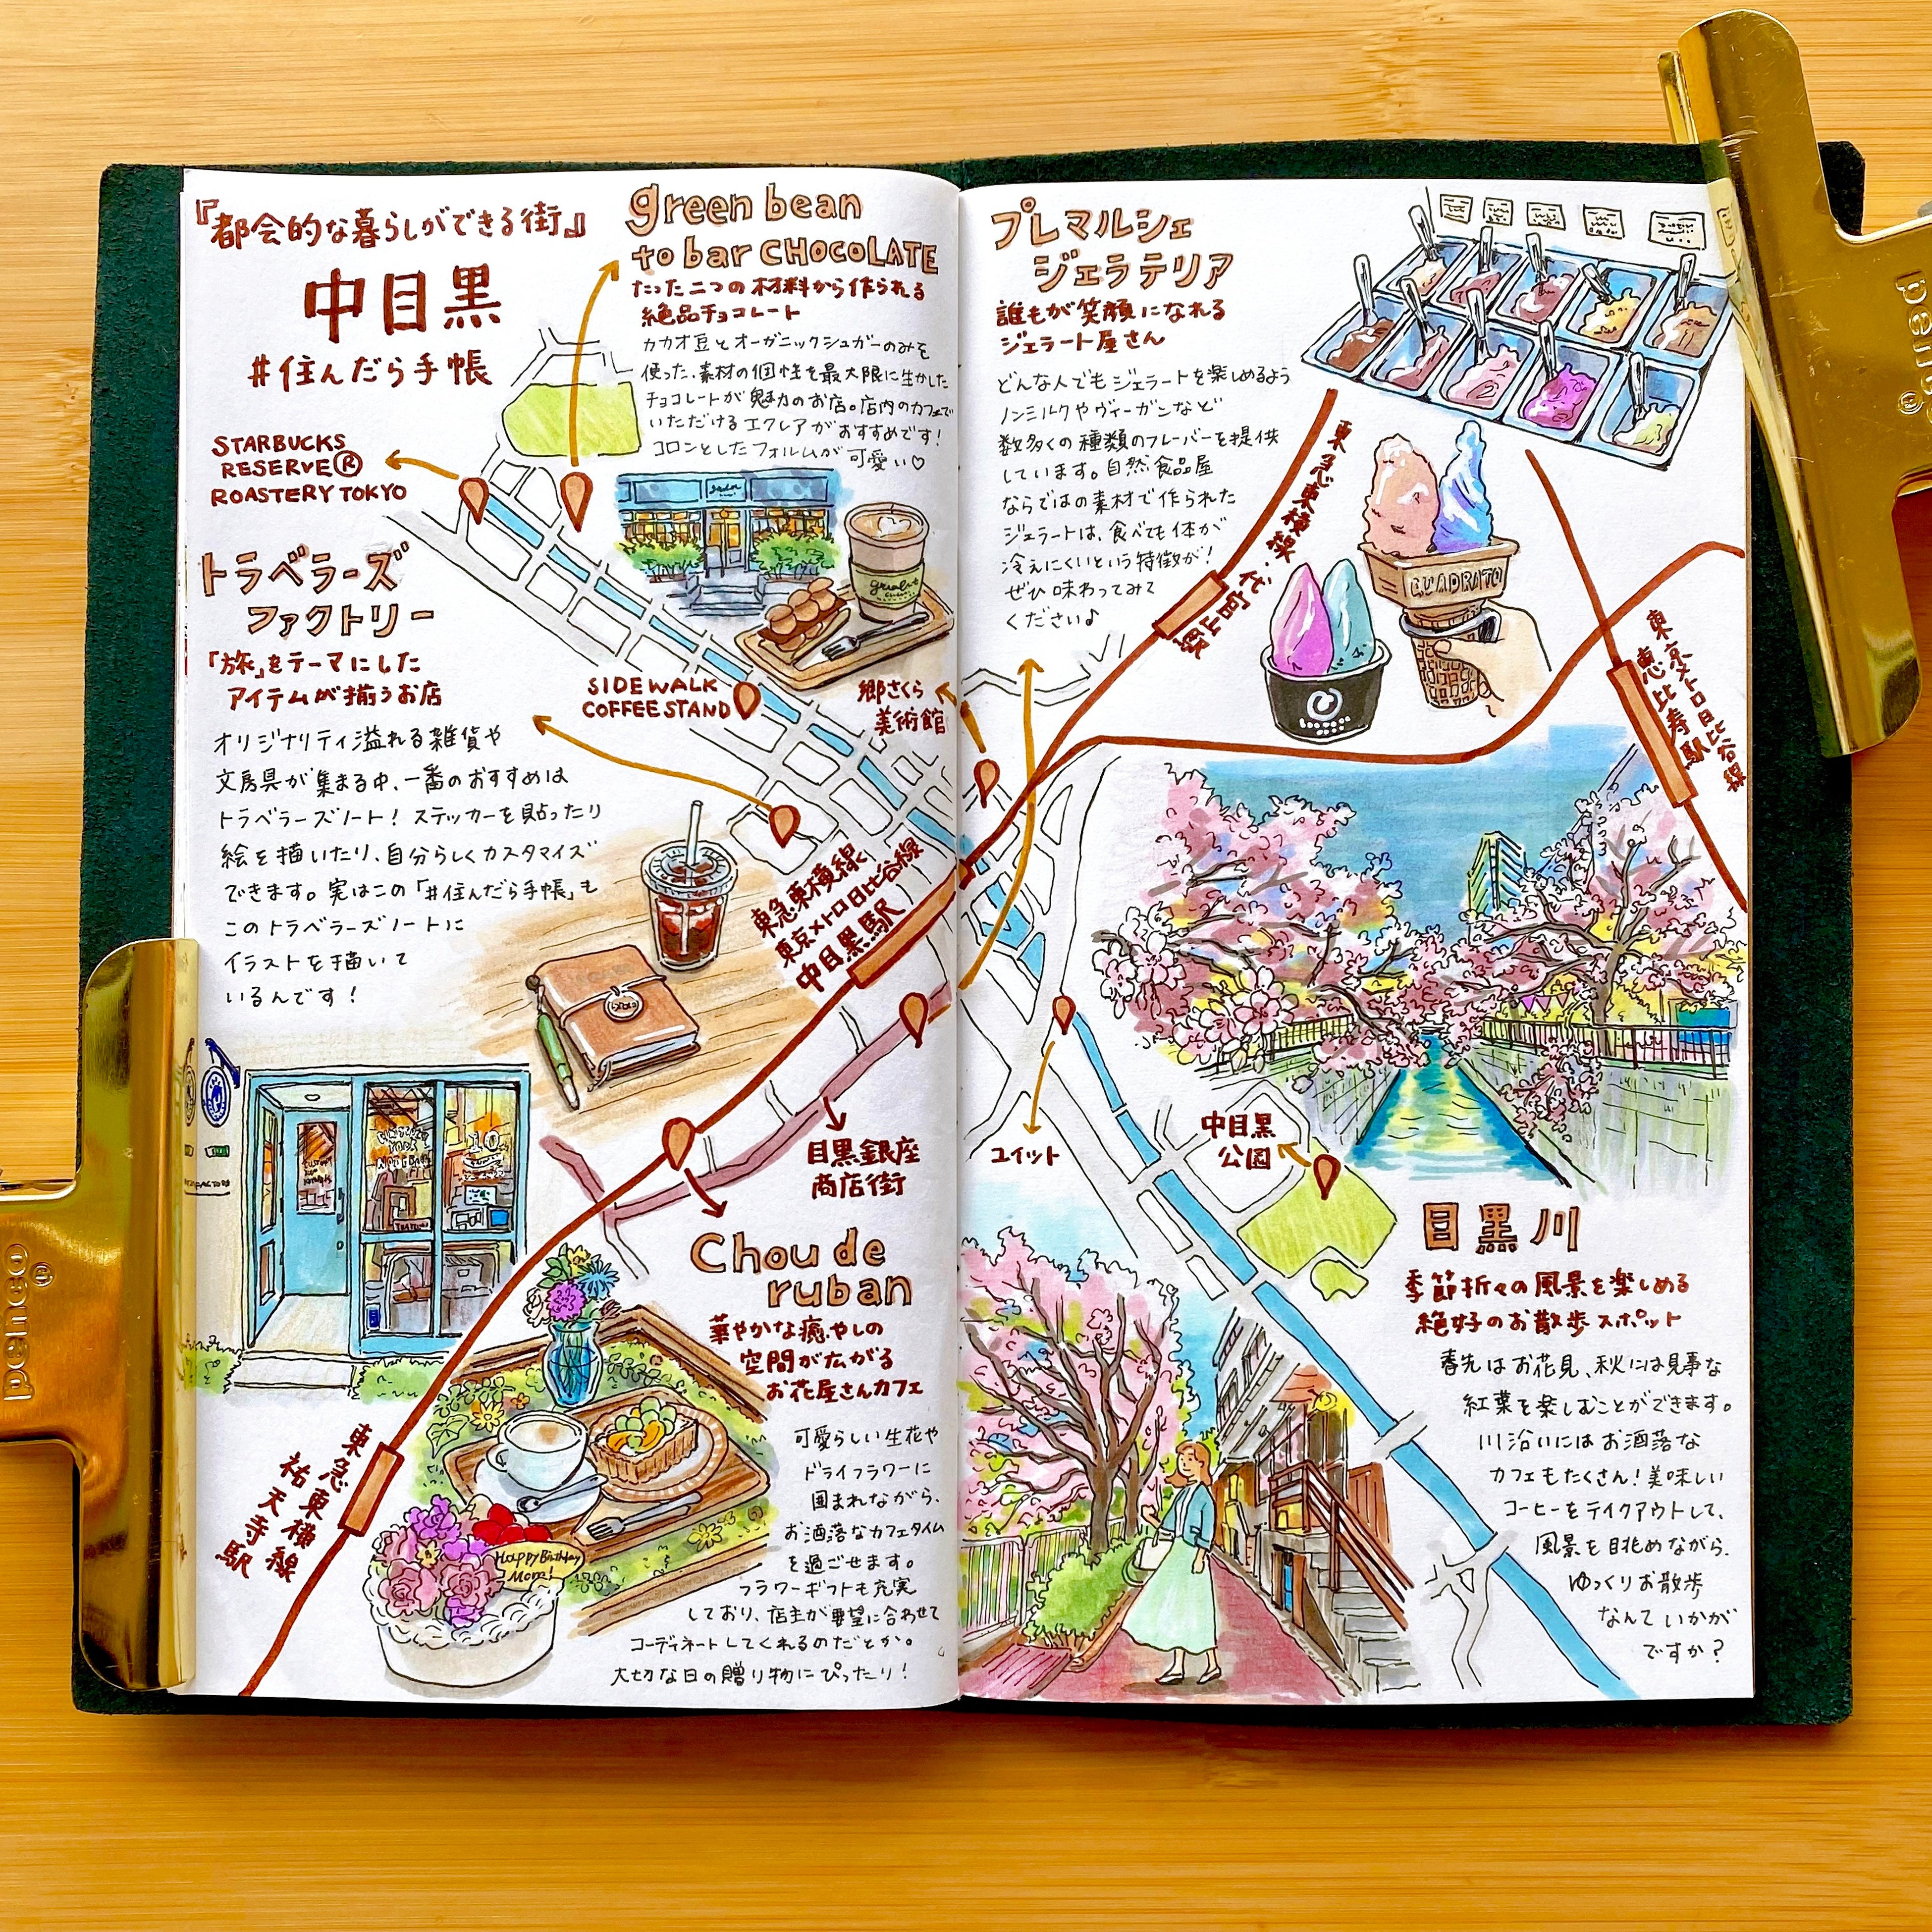 『都会的な暮らしができる街』
中目黒
#住んだら手帳
green bean
to bar CHOCOLATE
たった二つの材料から作られる
絶品チョコレート
カカオ豆とオーガニックシュガーのみを
使った、素材の個性を最大限に生かした
チョコレートが魅力のお店。店内のカフェで
いただけるエクレアがおすすめです!
コロンとしたフォルムが可愛い♡
STARBUCKS
RESERVE®
ROASTERY TOKYO
トラベラーズ
ファクトリー
「旅」をテーマにした
アイテムが揃うお店
オリジナリティ溢れる雑貨や
文房具が集まる中、一番のおすすめは
トラベラーズノート!ステッカーを貼ったり
絵を描いたり、自分らしくカスタマイズ
できます。実はこの「#住んだら手帳」も
このトラベラーズノートに
イラストを描いて
いるんです!
SIDEWALK
COFFEE STAND
郷さくら
美術館
東急東横線
東京メトロ日比谷線
中目黒駅
目黒銀座
商店街
Chou de
ruban
華やかな癒やしの
空間が広がる
お花屋さんカフェ
可愛らしい生花や
ドライフラワーに
囲まれながら、
お洒落なカフェタイム
を過ごせます。
フラワーギフトも充実
しており、店主が要望に合わせて
コーディネートしてくれるのだとか。
大切な日の贈り物にぴったり!
Happy Birthday
Mom!
東急東横線
祐天寺駅
penco®
プレマルシェ
ジェラテリア
誰もが笑顔になれる
ジェラート屋さん
どんな人でもジェラートを楽しめるよう
ノンミルクやヴィーガンなど
数多くの種類のフレーバーを提供
しています。自然食品屋
ならではの素材で作られた
ジェラートは、食べても体が
冷えにくいという特徴が!
ぜひ味わってみて
ください♪
東急東横線・代官山駅
QUADRATO
東京メトロ日比谷線
恵比寿駅
ユイット
中目黒
公園
目黒川
季節折々の風景を楽しめる
絶好のお散歩スポット
春先はお花見、秋には見事な
紅葉を楽しむことができます。
川沿いにはお洒落な
カフェもたくさん!美味しい
コーヒーをテイクアウトして、
風景を眺めながら、
ゆっくりお散歩
なんていかが
ですか?
penco®